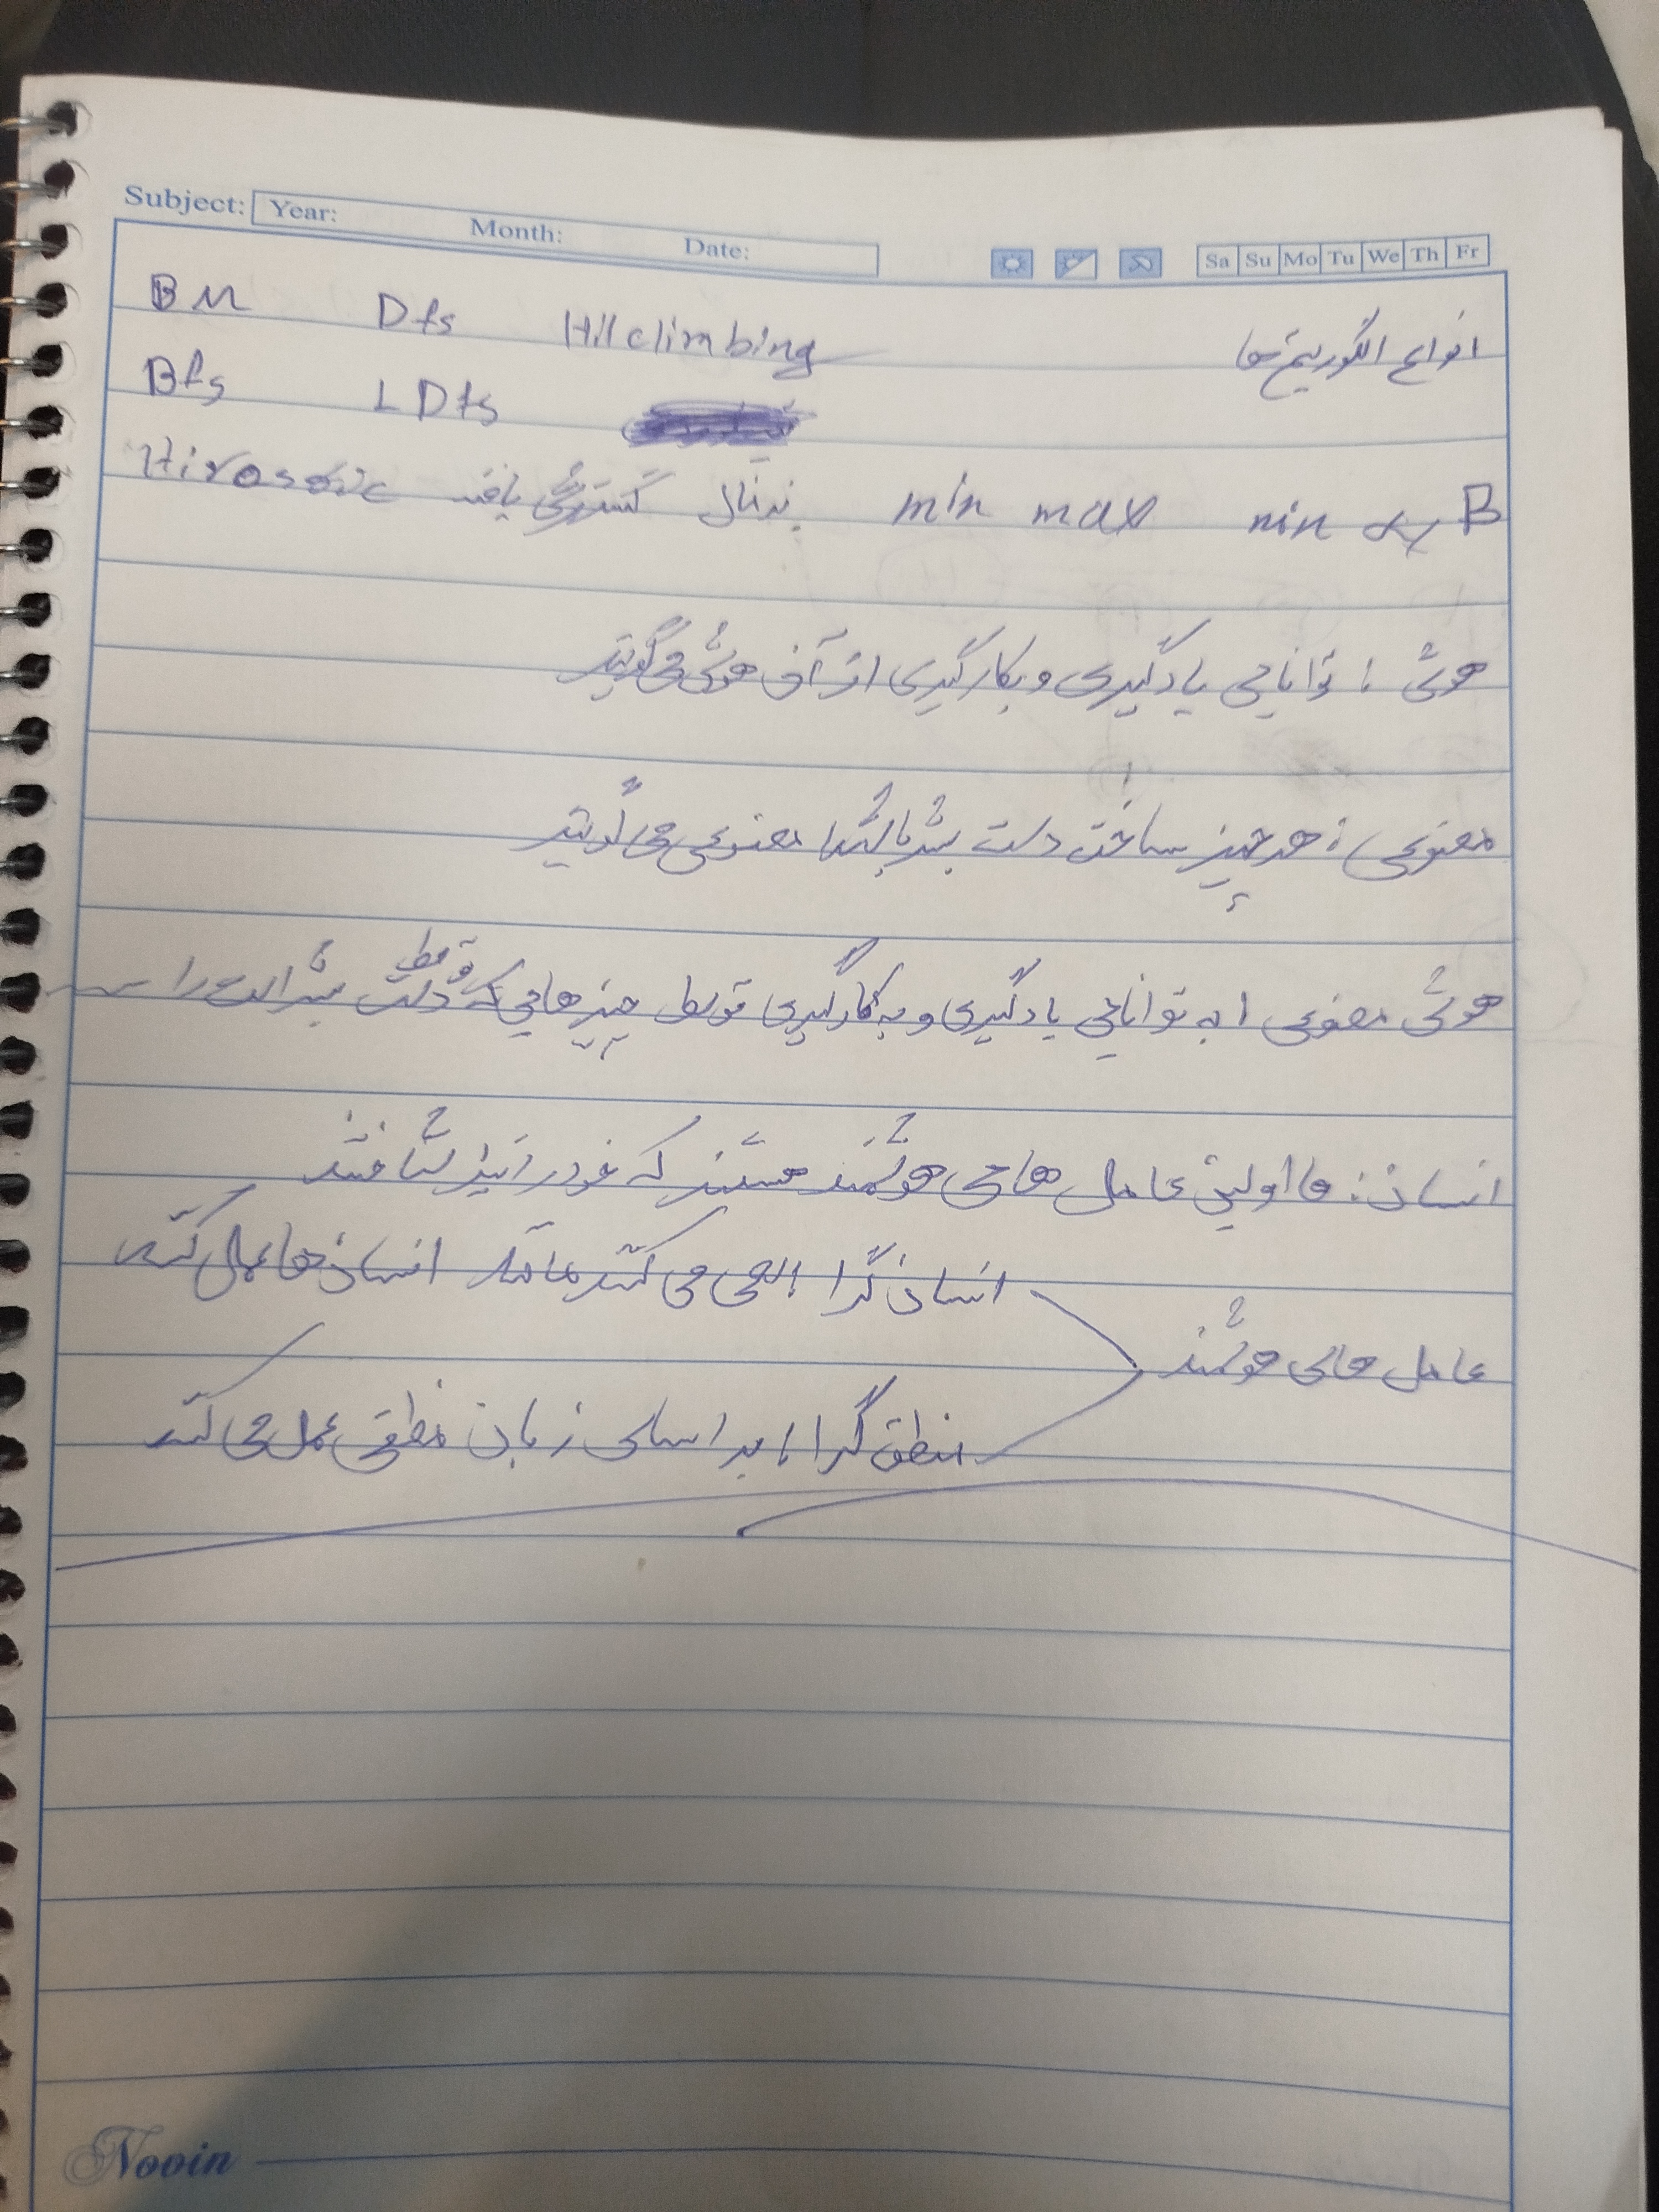 Subject: Year: Month: Date: Sa Su Mo Tu We Th Fr
انواع الگوریتم ها
BM Dfs Hillclimbing
Bfs LDfs
گسترش یافته min max min α B
هوش : توانایی یادگیری و بکارگیری از آن هوش می گویند
مصنوعی : هر چیز ساخت دست بشر باشد مصنوعی می گویند
هوش مصنوعی : به توانایی یادگیری و به کارگیری توسط چیزهایی که توسط دست بشر است را
انسان : ما اولین عامل های هوشمند هستند که خود را نیز شناختند
عامل های هوشمند
انسان گرا : سعی می کند مانند انسان ها عمل کند
منطق گرا : بر اساس زبان منطقی عمل می کند
Nooin